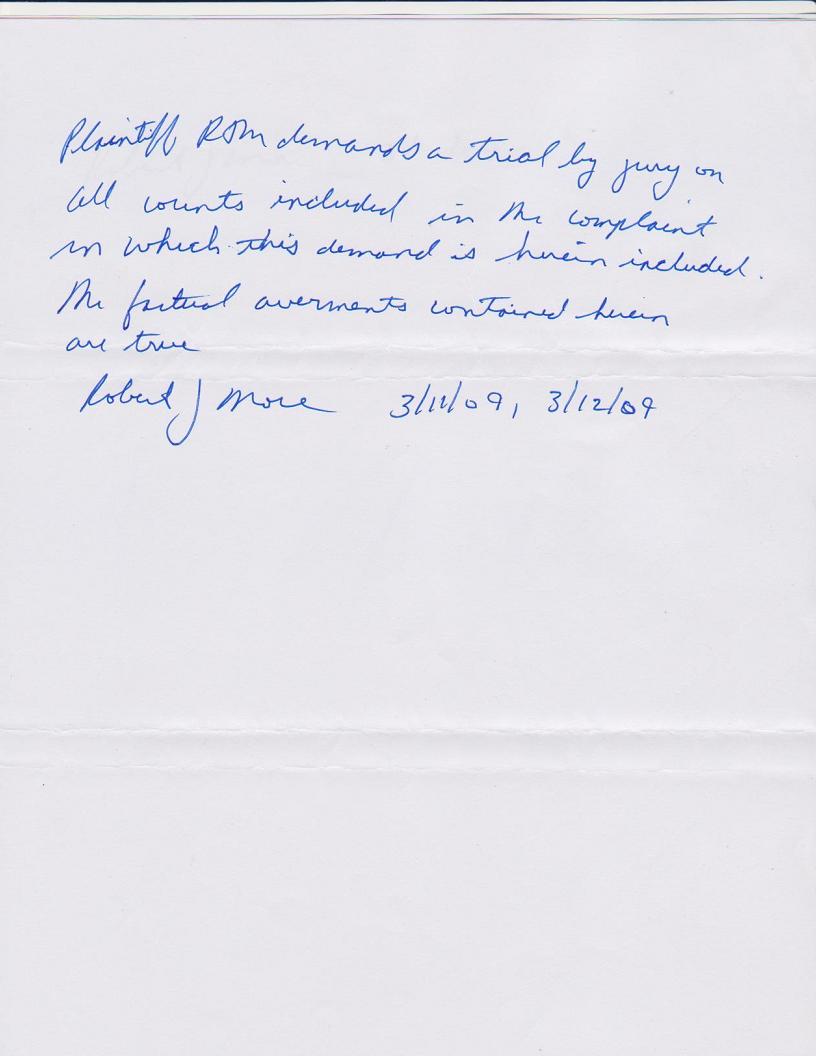 Plaintiff RJM demands a trial by jury on
all counts included in the complaint
in which this demand is herein included.
The factual averments contained herein
are true
Robert J More 3/11/09, 3/12/09